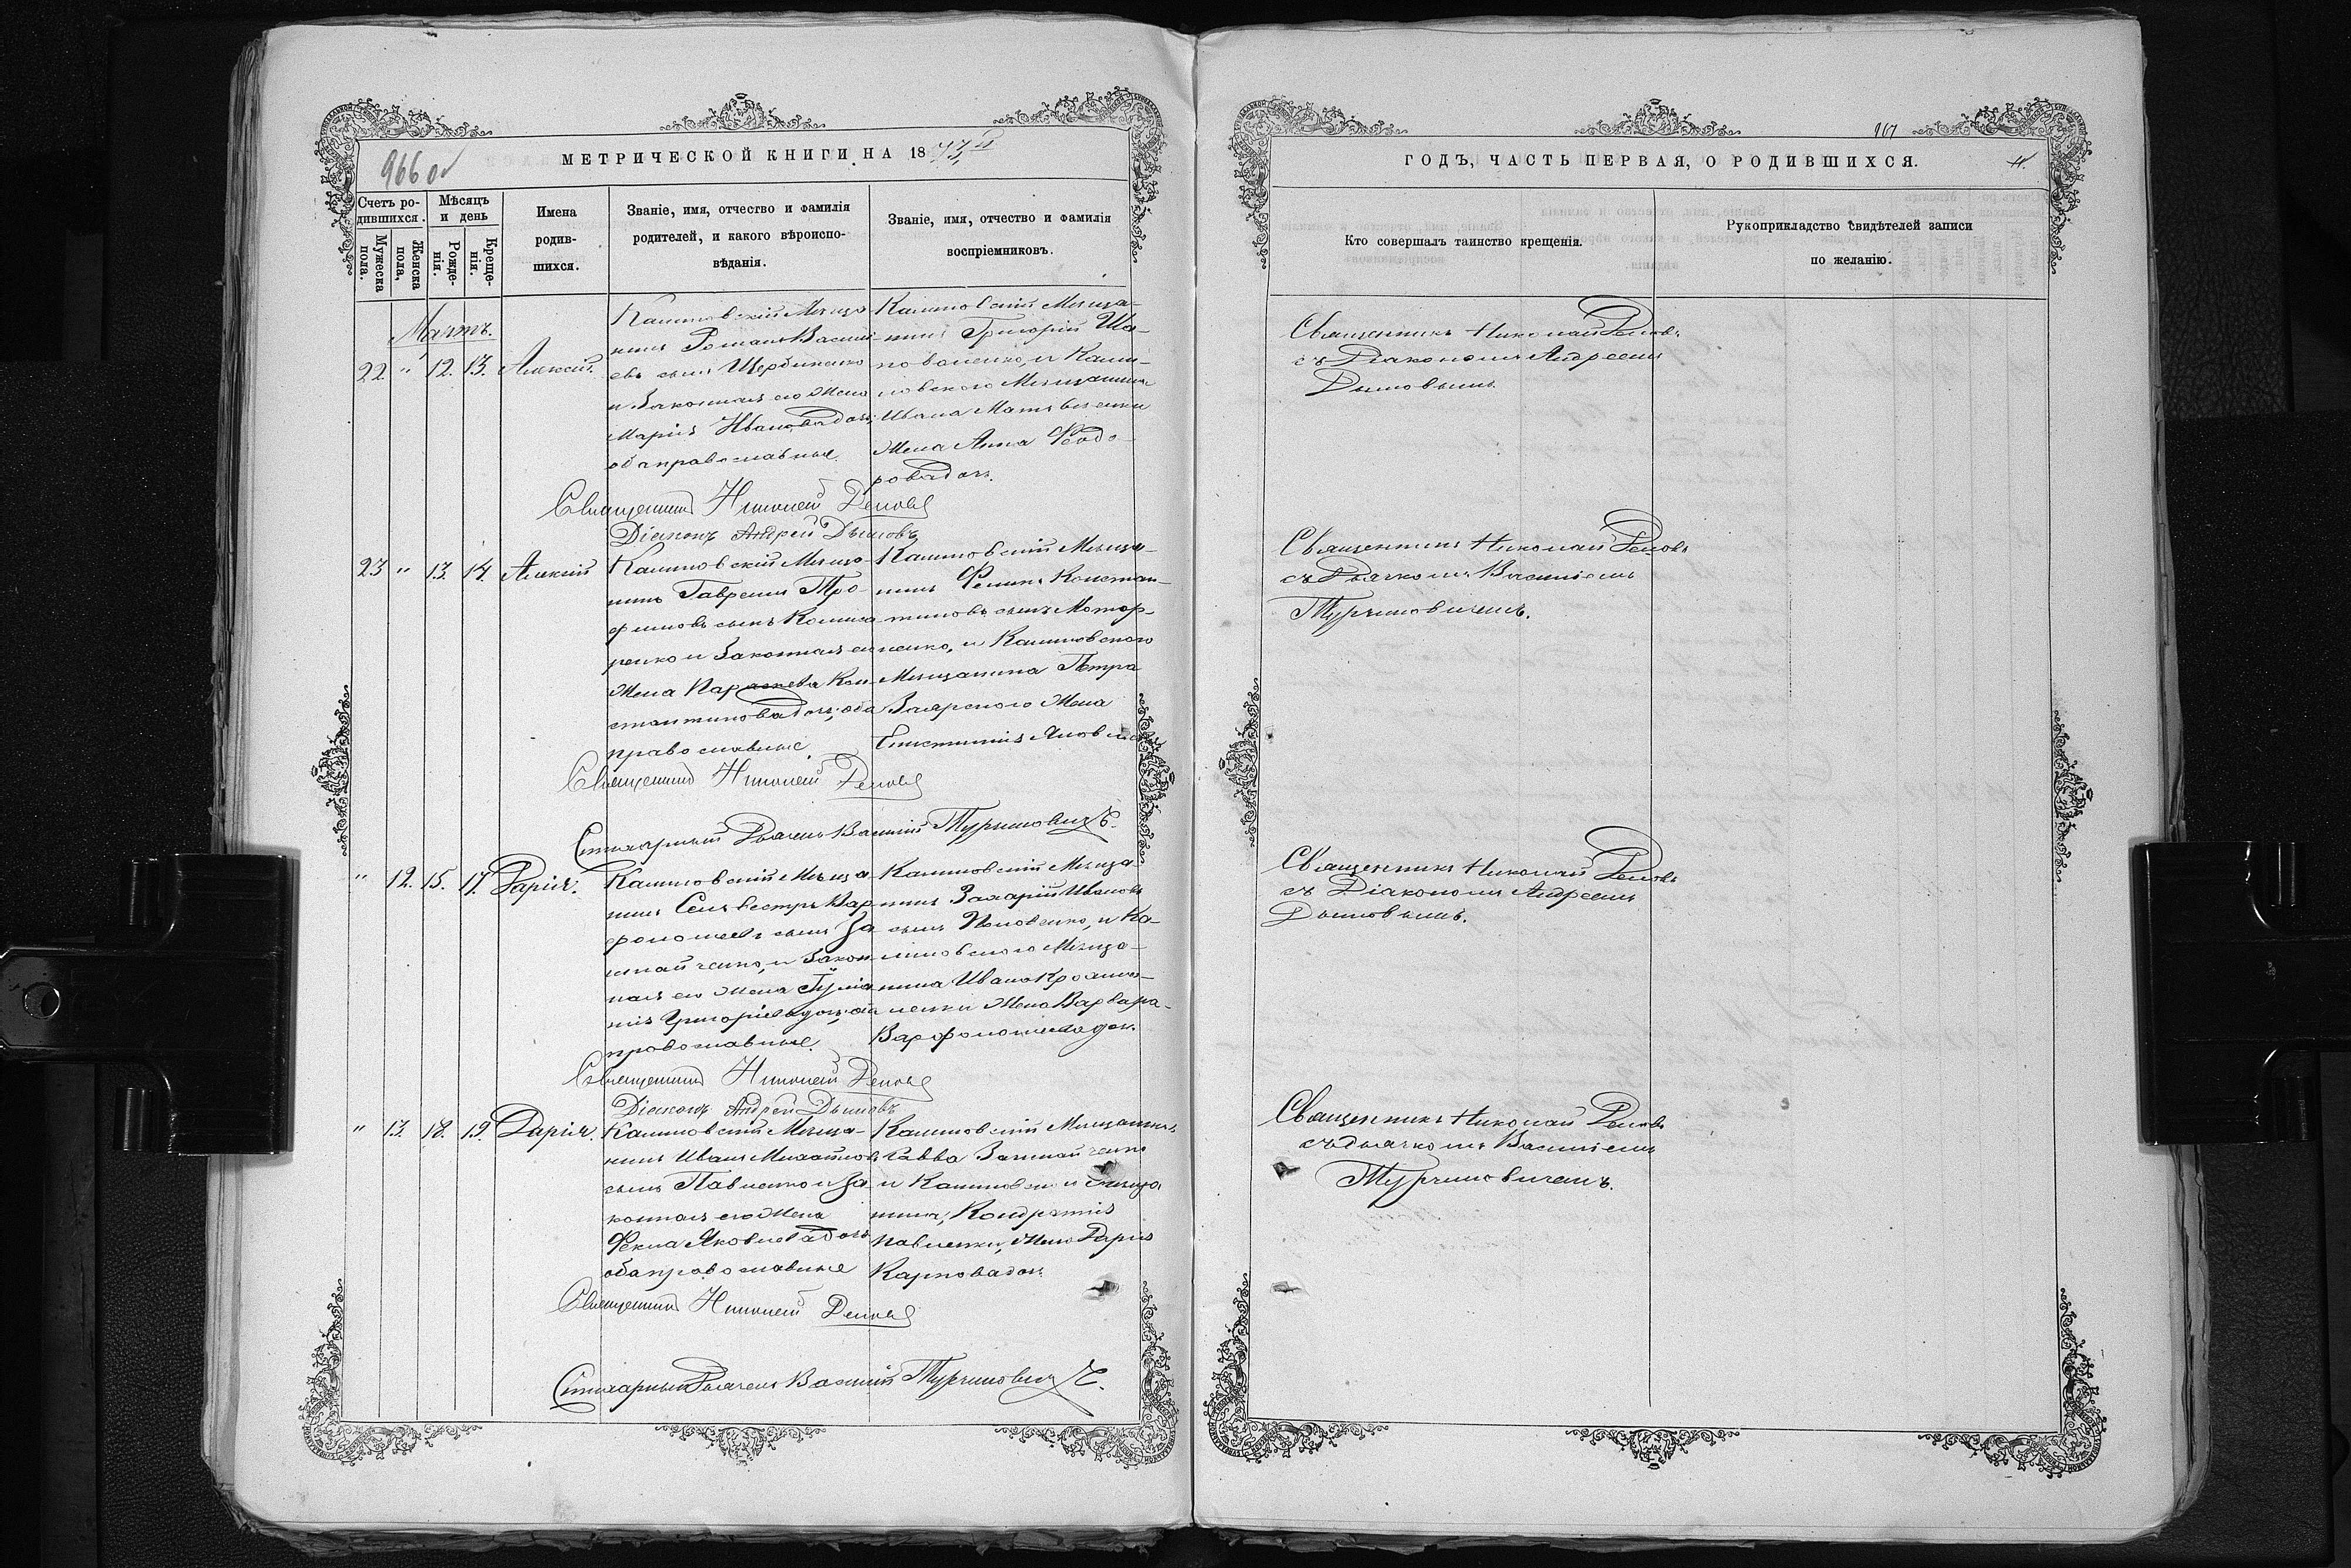 966 об
МЕТРИЧЕСКОЙ КНИГИ НА 18
Счетъ родившихся.
Мужеска пола.
Женска пола.
Мѣсяцъ и день
Рожденія.
Крещенія.
Имена родившихся.
Званіе, имя, отчество и фамилія
родителей, и какого вѣроиспо-
вѣданія.
Званіе, имя, отчество и фамилія
воспріемниковъ.
Мартъ.
22 " 12. 13. Алексій.
Калиновскій Мѣща-
нинъ Романъ Васильи-
евъ сынъ Щербиненко
и Законная его Жена
Марія Ивановадочь;
оба православные.
Калиновскій Мѣща-
нинъ Григорій Ша-
поваленко, и Кали-
новского Мѣщанина
Ивана Матвѣенки
Жена Анна Феодо-
ровадочь.
Священникъ Николай
Діаконъ Андрей Дымовъ
23 " 13. 14. Алексій
Калиновскій Мѣща-
нинъ Гавріилъ Тро-
фимовъ сынъ
ренко и Законная его
Жена Параскева Кон-
стантиновадочь; оба
православные
Калиновскій Мѣща-
нинъ Филипъ Констан-
тиновъ сынъ Мотор-
ненко, и Калиновского
Мѣщанина Петра
Заярского Жена
Священникъ Николай
Стихарный Дьячекъ Василій Турчиновичъ.
" 12. 15. 17. Дарія.
Калиновскій Мѣща-
нинъ Сельвестръ Вар-
фоломеевъ сынъ За-

ная его Жена
нія Григоріевадочь; оба
православные.
Калиновскій Мѣща-
нинъ Захарій Ивановъ
сынъ Поповенко, и Ка-
линовского Мѣща-
нина Ивана
ленки Жена Варвара
Варфоломеевадочь.
Священникъ Николай
Діаконъ Андрей Дымовъ
" 13. 18. 19. Дарія.
Калиновскій Мѣща-
нинъ Иванъ Михайловъ
сынъ Павленко и За-
конная его Жена
Фекла Яковлевадочь
оба православные
Калиновскій Мѣщанинъ
Савва
и Калиновского Мѣща
нина, Кондратія
Павленки, Жена Дарія
Карповадочь.
Священникъ Николай
Стихарный Дьячекъ Василій Турчиновичъ.
967
ГОДЪ, ЧАСТЬ ПЕРВАЯ, О РОДИВШИХСЯ.
Кто совершалъ таинство крещенія.
Рукоприкладство свидѣтелей записи
по желанію.
Священникъ Николай
съ Діакономъ Андреемъ
Дымовымъ
Священникъ Николай
съ Дьячкомъ Василіемъ
Турчиновичемъ.
Священникъ Николай
съ Діакономъ Андреемъ
Дымовымъ.
Священникъ Николай
съ дьячкомъ Василіемъ
Турчиновичемъ.